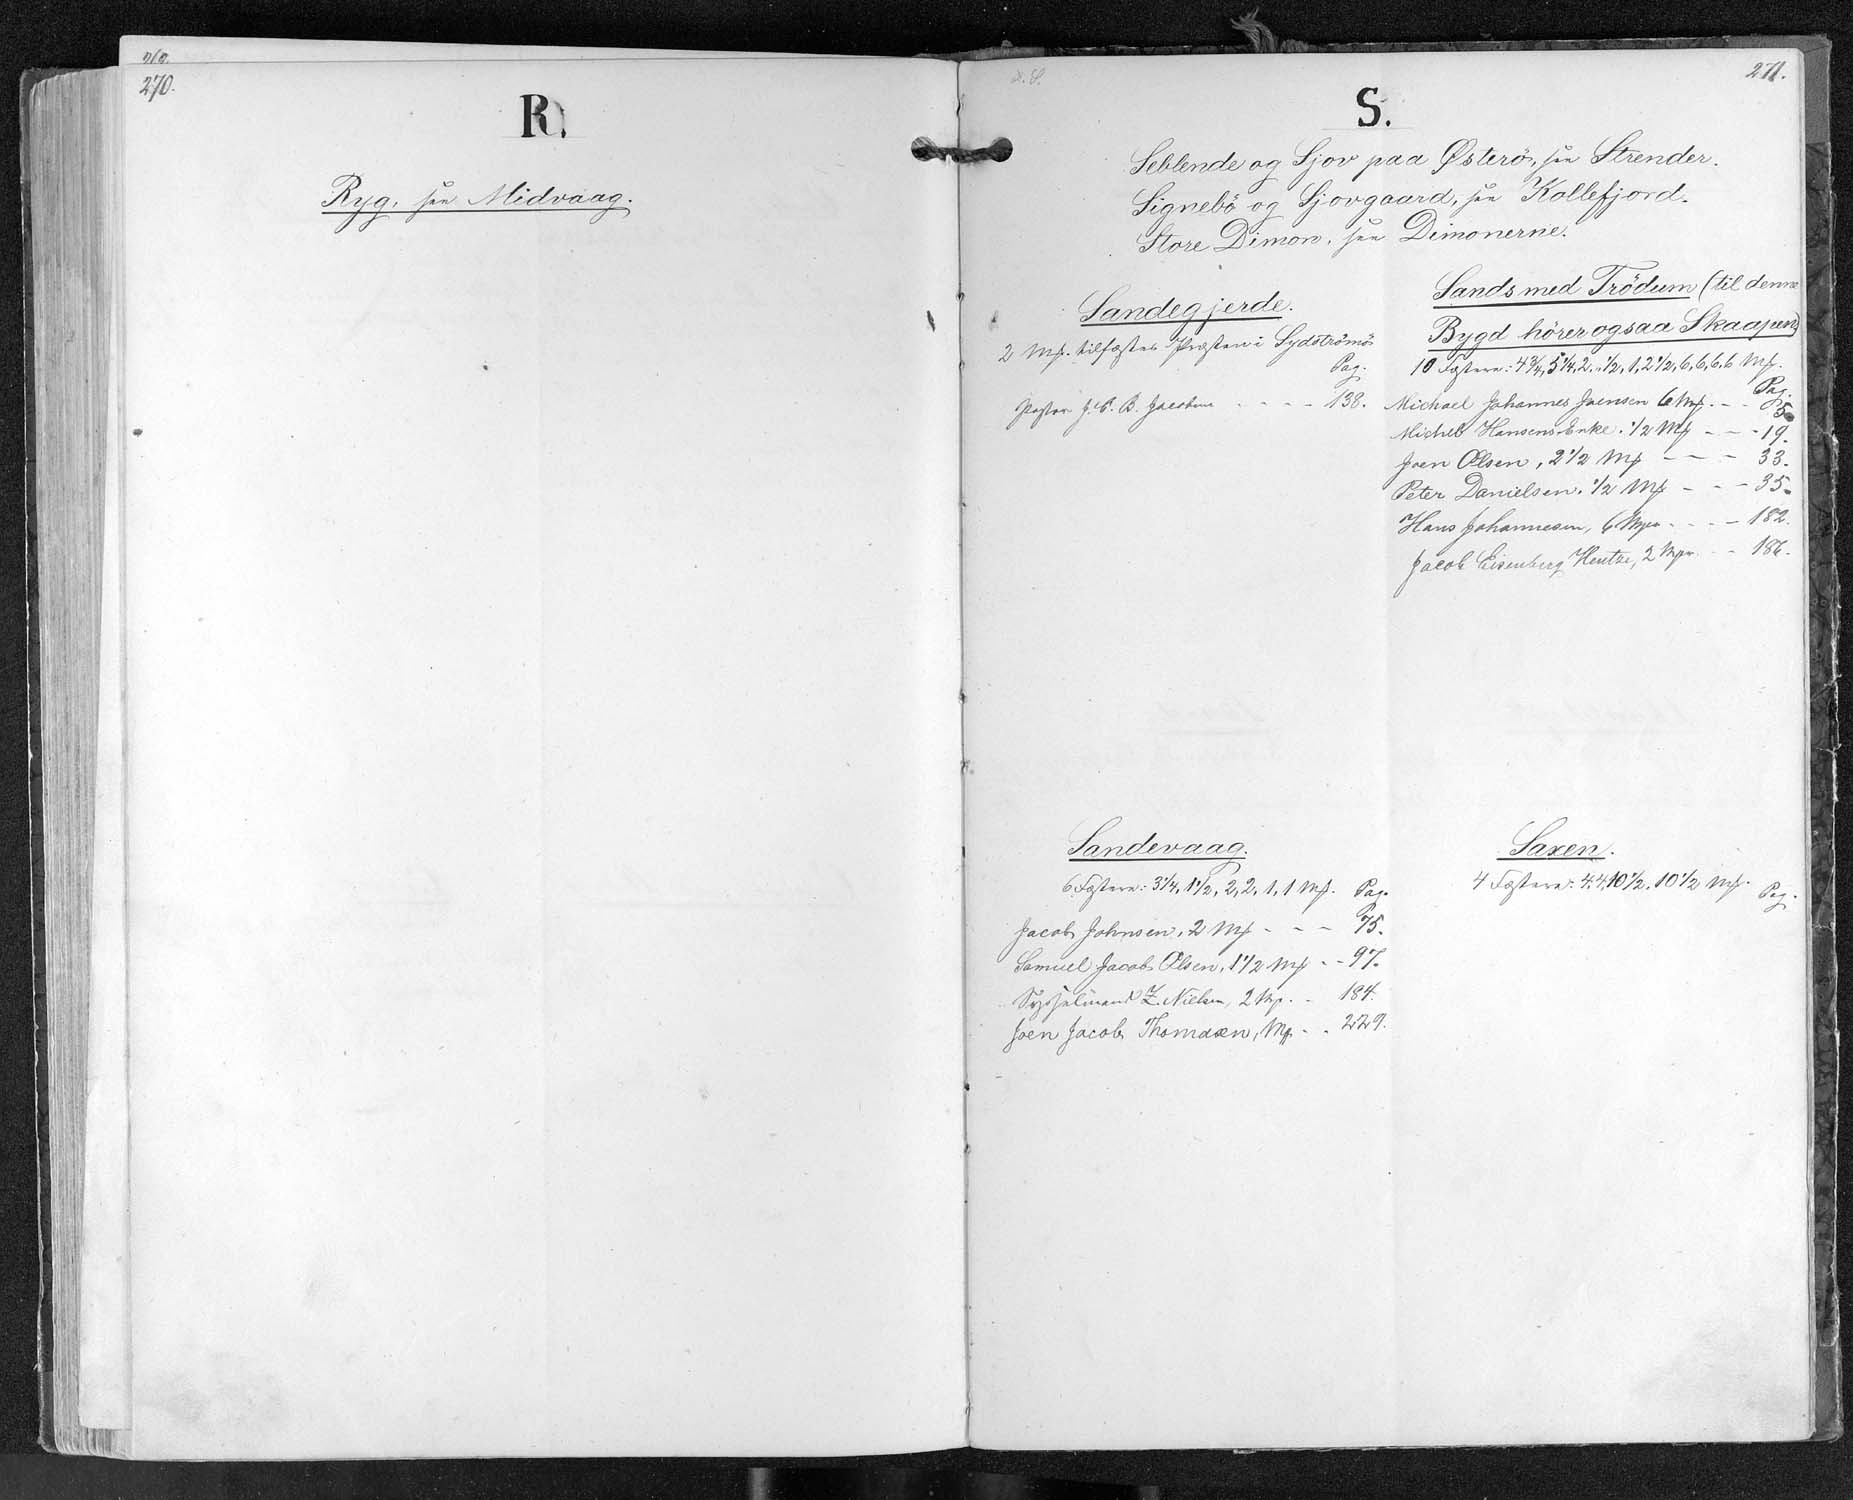 270.
R.
Ryg, see Midvaag.
271.
S.
Seblende og Sjov paa Østerö, see Strender.
Signebö og Sjovgaard, see Kollefjord.
Store Dimon, see Dimonerne.
Sandegjerde.
2 Mk. tilfæstes Præsten i Sydströmö
Pag.
Pastor J. B. Jacobsen - - - - 138.
Sands med Trödum (til denne
Bygd hörer ogsaa Skaapen)
10 Fæstere: 4 3/4, 5 1/4, 2, 1/2, 1, 2 1/2, 6, 6, 6, 6 Mk.
Pag.
Michael Johannes Joensen 6 Mk. - - 5
Michel Hansens Enke. 1/2 Mk - - - 19.
Joen Olsen, 2 1/2 Mk - - - 33.
Peter Danielsen. 1/2 Mk - - - 35.
Hans Johannesen, 6 Mk - - - - 182.
Jacob Eisenberg Hentze, 2 Mk - - 186.
Sandevaag.
6 Fæstere: 3 1/4, 1 1/2, 2, 2, 1, 1 Mk. Pag.
Jacob Johnsen, 2 Mk - - - 75.
Samuel Jacob Olsen, 1 1/2 Mk - - 97.
Sysselmand Z. Nielsen, 2 Mk. - 184.
Joen Jacob Thomasen, Mk - - 229.
Saxen.
4 Fæstere: 4, 4, 10 1/2, 10 1/2 Mk.
Pag.